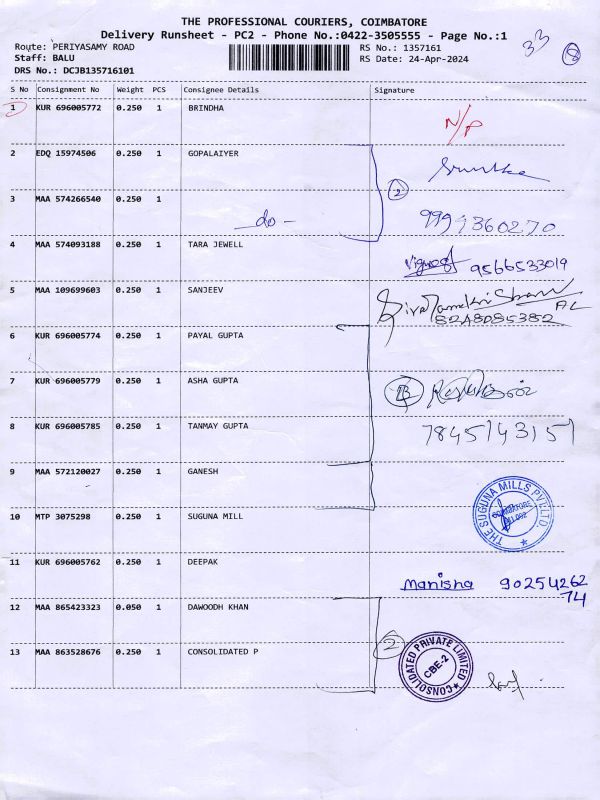 THE PROFESSIONAL COURIERS, COIMBATORE
Delivery Runsheet - PC2 - Phone No.:0422-3505555 - Page No.:1
Route: PERIYASAMY ROAD RS No.: 1357161
Staff: BALU RS Date: 24-Apr-2024
DRS No.: DCJB135716101
33 8
S No Consignment No Weight PCS Consignee Details Signature
1 KUR 696005772 0.250 1 BRINDHA N/P
2 EDQ 15974506 0.250 1 GOPALAIYER
3 MAA 574266540 0.250 1 -do- 2 9994360270
4 MAA 574093188 0.250 1 TARA JEWELL 9566533019
5 MAA 109699603 0.250 1 SANJEEV
6 KUR 696005774 0.250 1 PAYAL GUPTA
7 KUR 696005779 0.250 1 ASHA GUPTA
8 KUR 696005785 0.250 1 TANMAY GUPTA 7845143151
9 MAA 572120027 0.250 1 GANESH
10 MTP 3075298 0.250 1 SUGUNA MILL THE SUGUNA MILLS PVT.LTD. COIMBATORE
11 KUR 696005762 0.250 1 DEEPAK Manisha 90254262
74
12 MAA 865423323 0.050 1 DAWOODH KHAN
13 MAA 863528676 0.250 1 CONSOLIDATED P 2 CONSOLIDATED PRIVATE LIMITED CBE-2